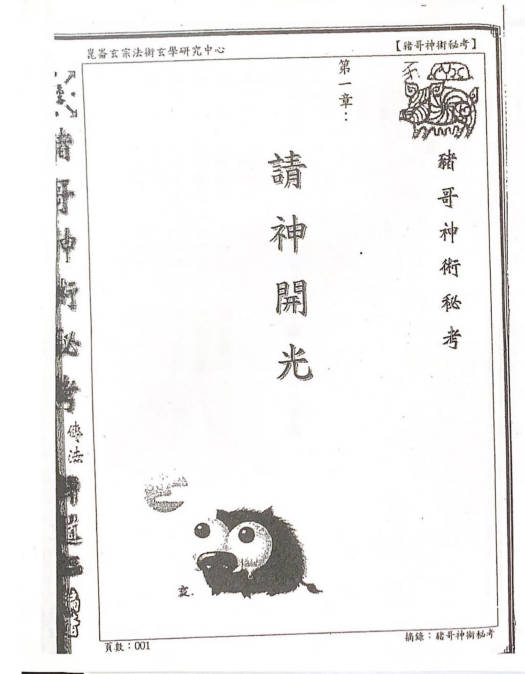 崑崙玄宗法術玄學研究中心
【豬哥神術秘考】
豕
豬哥神術秘考
第一章：
請神開光
豬哥神術秘考
傳法
亥.
頁數：001
摘錄：豬哥神術秘考